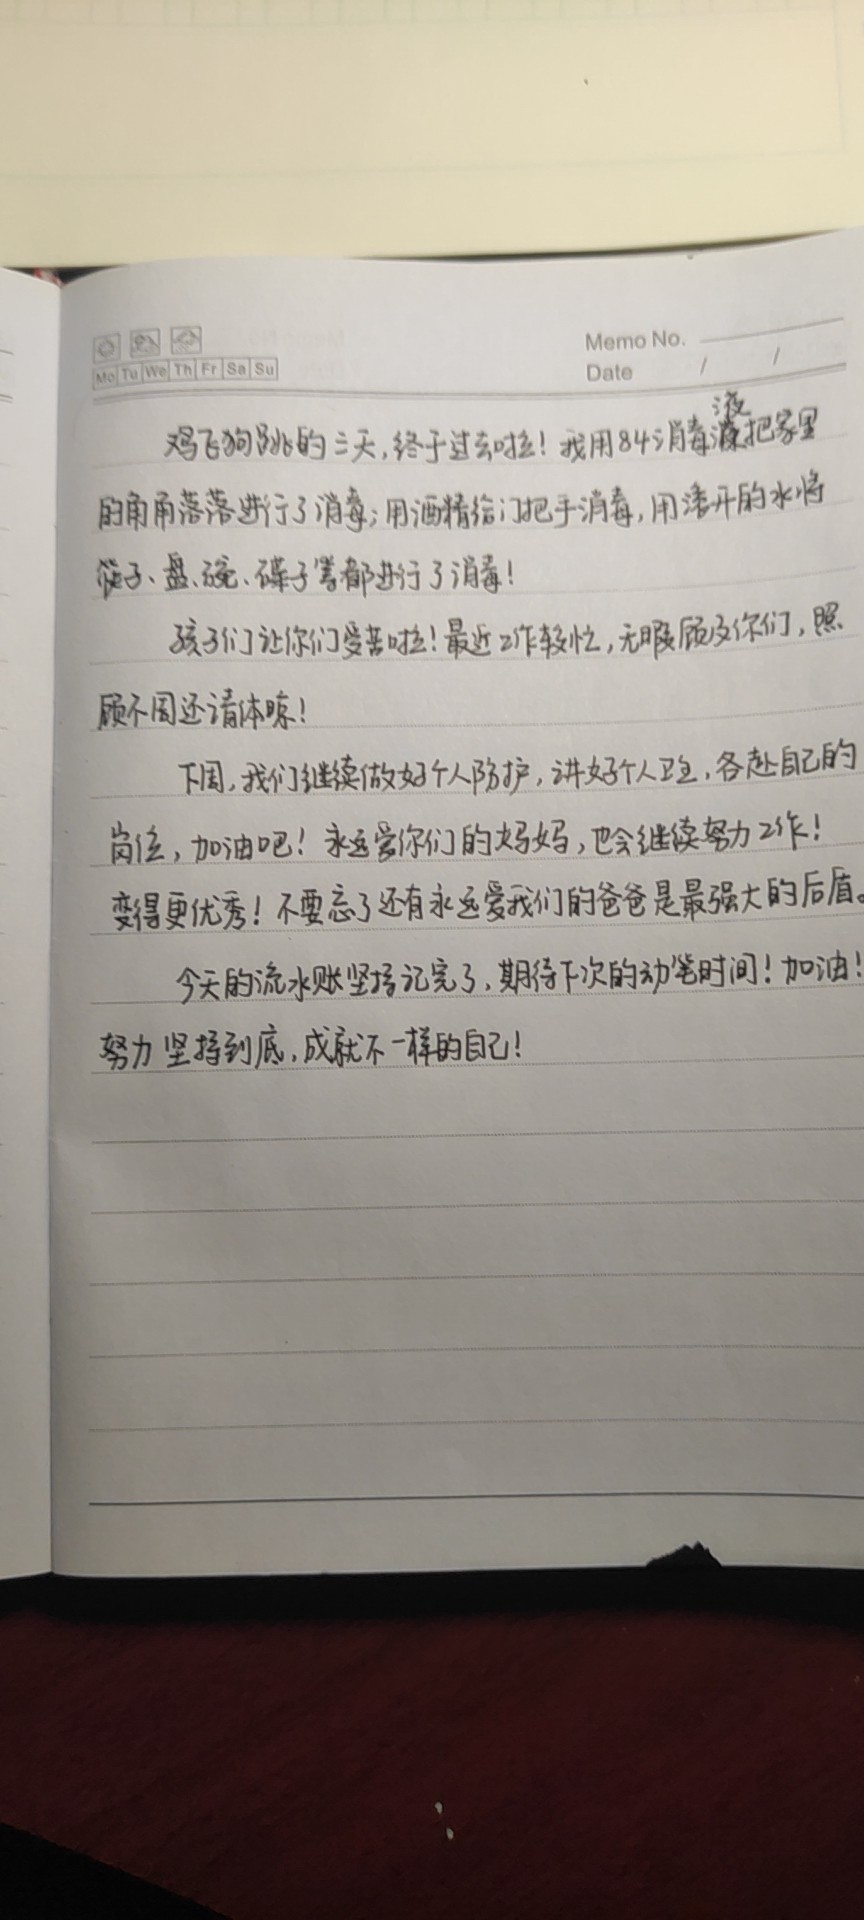 Memo No.
Mo Tu We Th Fr Sa Su
Date / /
鸡飞狗跳的三天,终于过去啦!我用84消毒液把家里
的角角落落进行了消毒;用酒精给门把手消毒,用沸开的水将
筷子、盘、碗、碟子等都进行了消毒!
孩子们让你们受苦啦!最近工作较忙,无暇顾及你们,照
顾不周还请体晾!
下周,我们继续做好个人防护,讲好个人卫生,各赴自己的
岗位,加油吧!永远爱你们的妈妈,也会继续努力工作!
变得更优秀!不要忘了还有永远爱我们的爸爸是最强大的后盾。
今天的流水账坚持记完了,期待下次的动笔时间!加油!
努力坚持到底,成就不一样的自己!